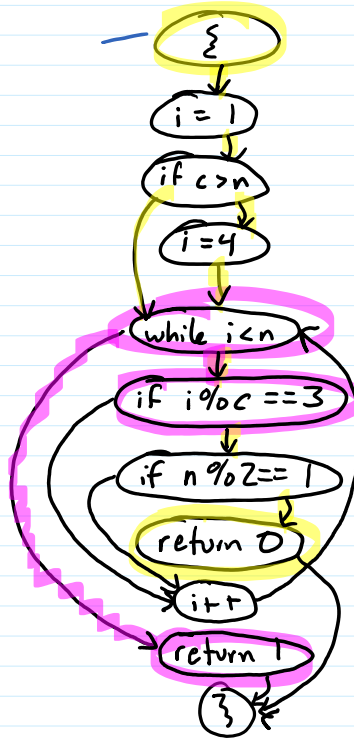 {
i = 1
if c>n
i=4
while i<n
if i%c ==3
if n%2== 1
return 0
i++
return 1
}